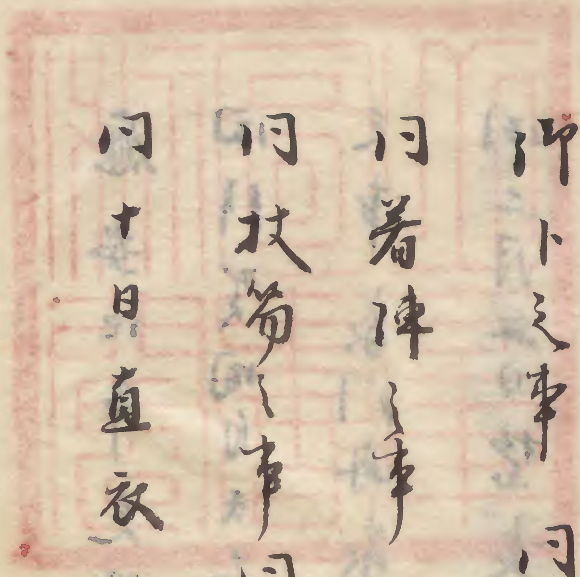 御卜之事 同
同著陣之事
同杖笏之事 同
同十日直衣